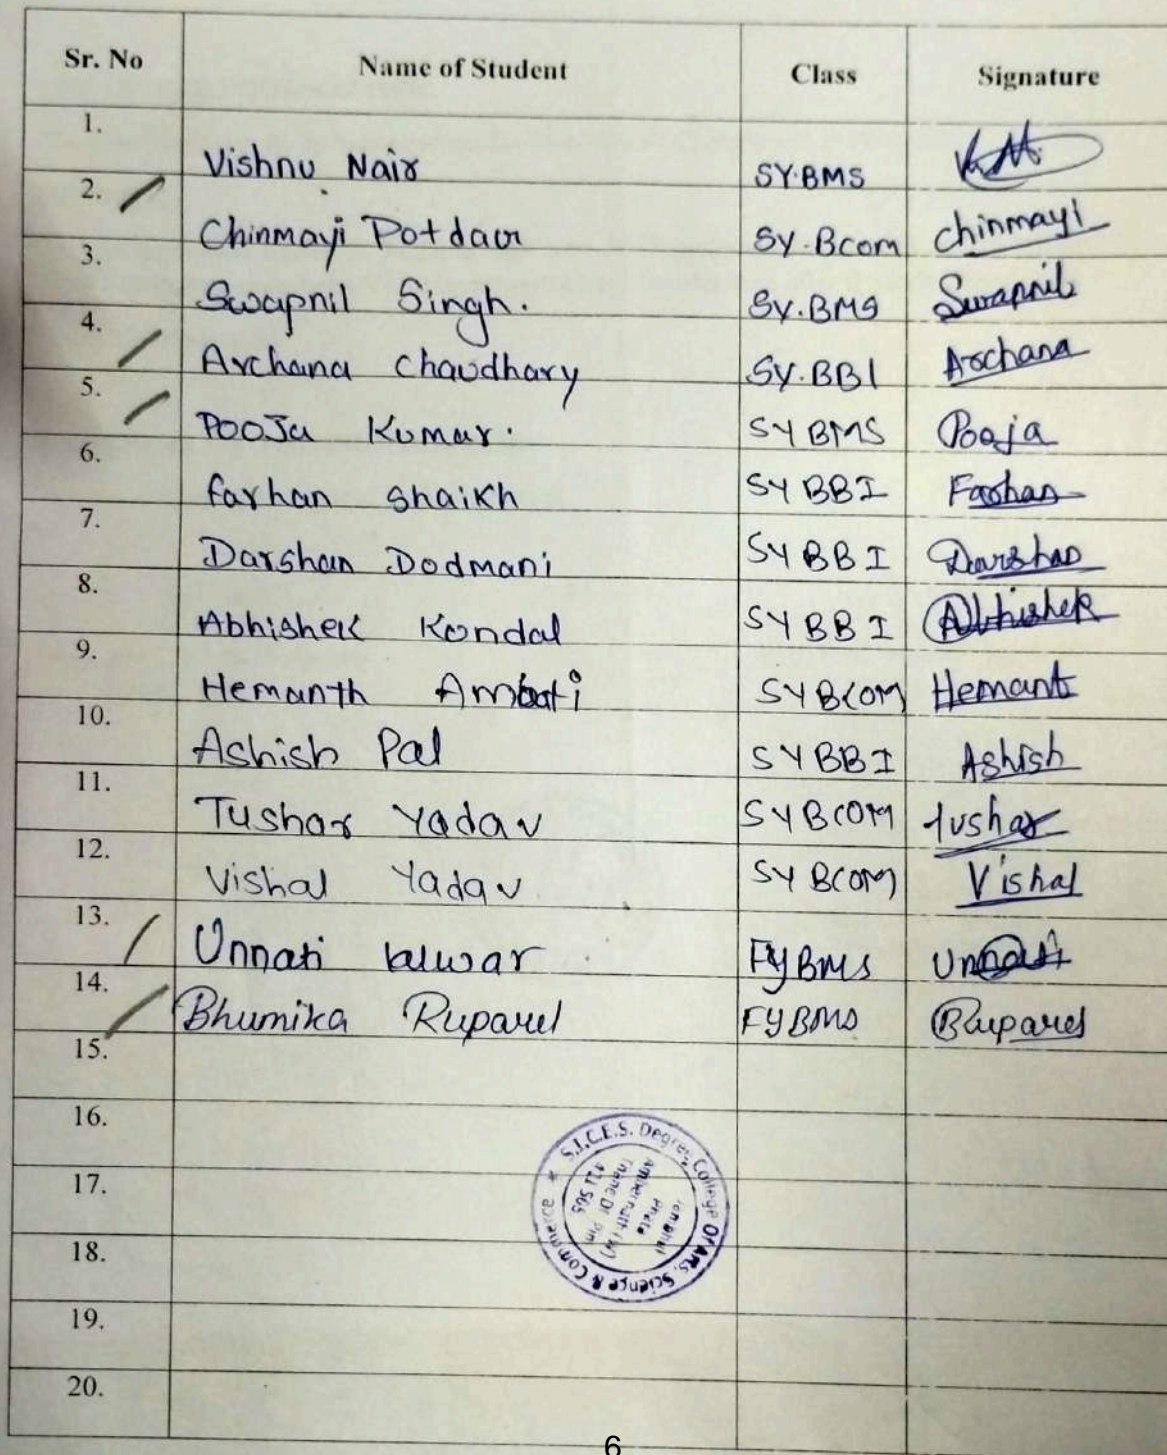 Sr. No Name of Student Class Signature
1. Vishnu Nair SY.BMS
2. Chinmayi Potdar SY.Bcom chinmayi
3. Swapnil Singh. SY.BMS Swapnil
4. Archana Chaudhary SY.BBI Archana
5. POOJa Kumar. SY BMS Pooja
6. farhan shaikh SY BBI Farhan
7. Darshan Dodmani SY BBI Darshan
8. Abhishek Kondal SY BBI Abhishek
9. Hemanth Ambati SYBCOM Hemant
10. Ashish Pal SYBBI Ashish
11. Tushar Yadav SYBCOM tushar
12. Vishal Yadav SY BCOM Vishal
13. Unnati FYBMS Unnati
14. Bhumika Ruparel FYBMS Ruparel
15.
16.
17.
18.
19.
20.
S.I.C.E.S. Degree College Of Arts, Science & Commerce
Ambernath (W)
Thane Dt Pin
421 505
6